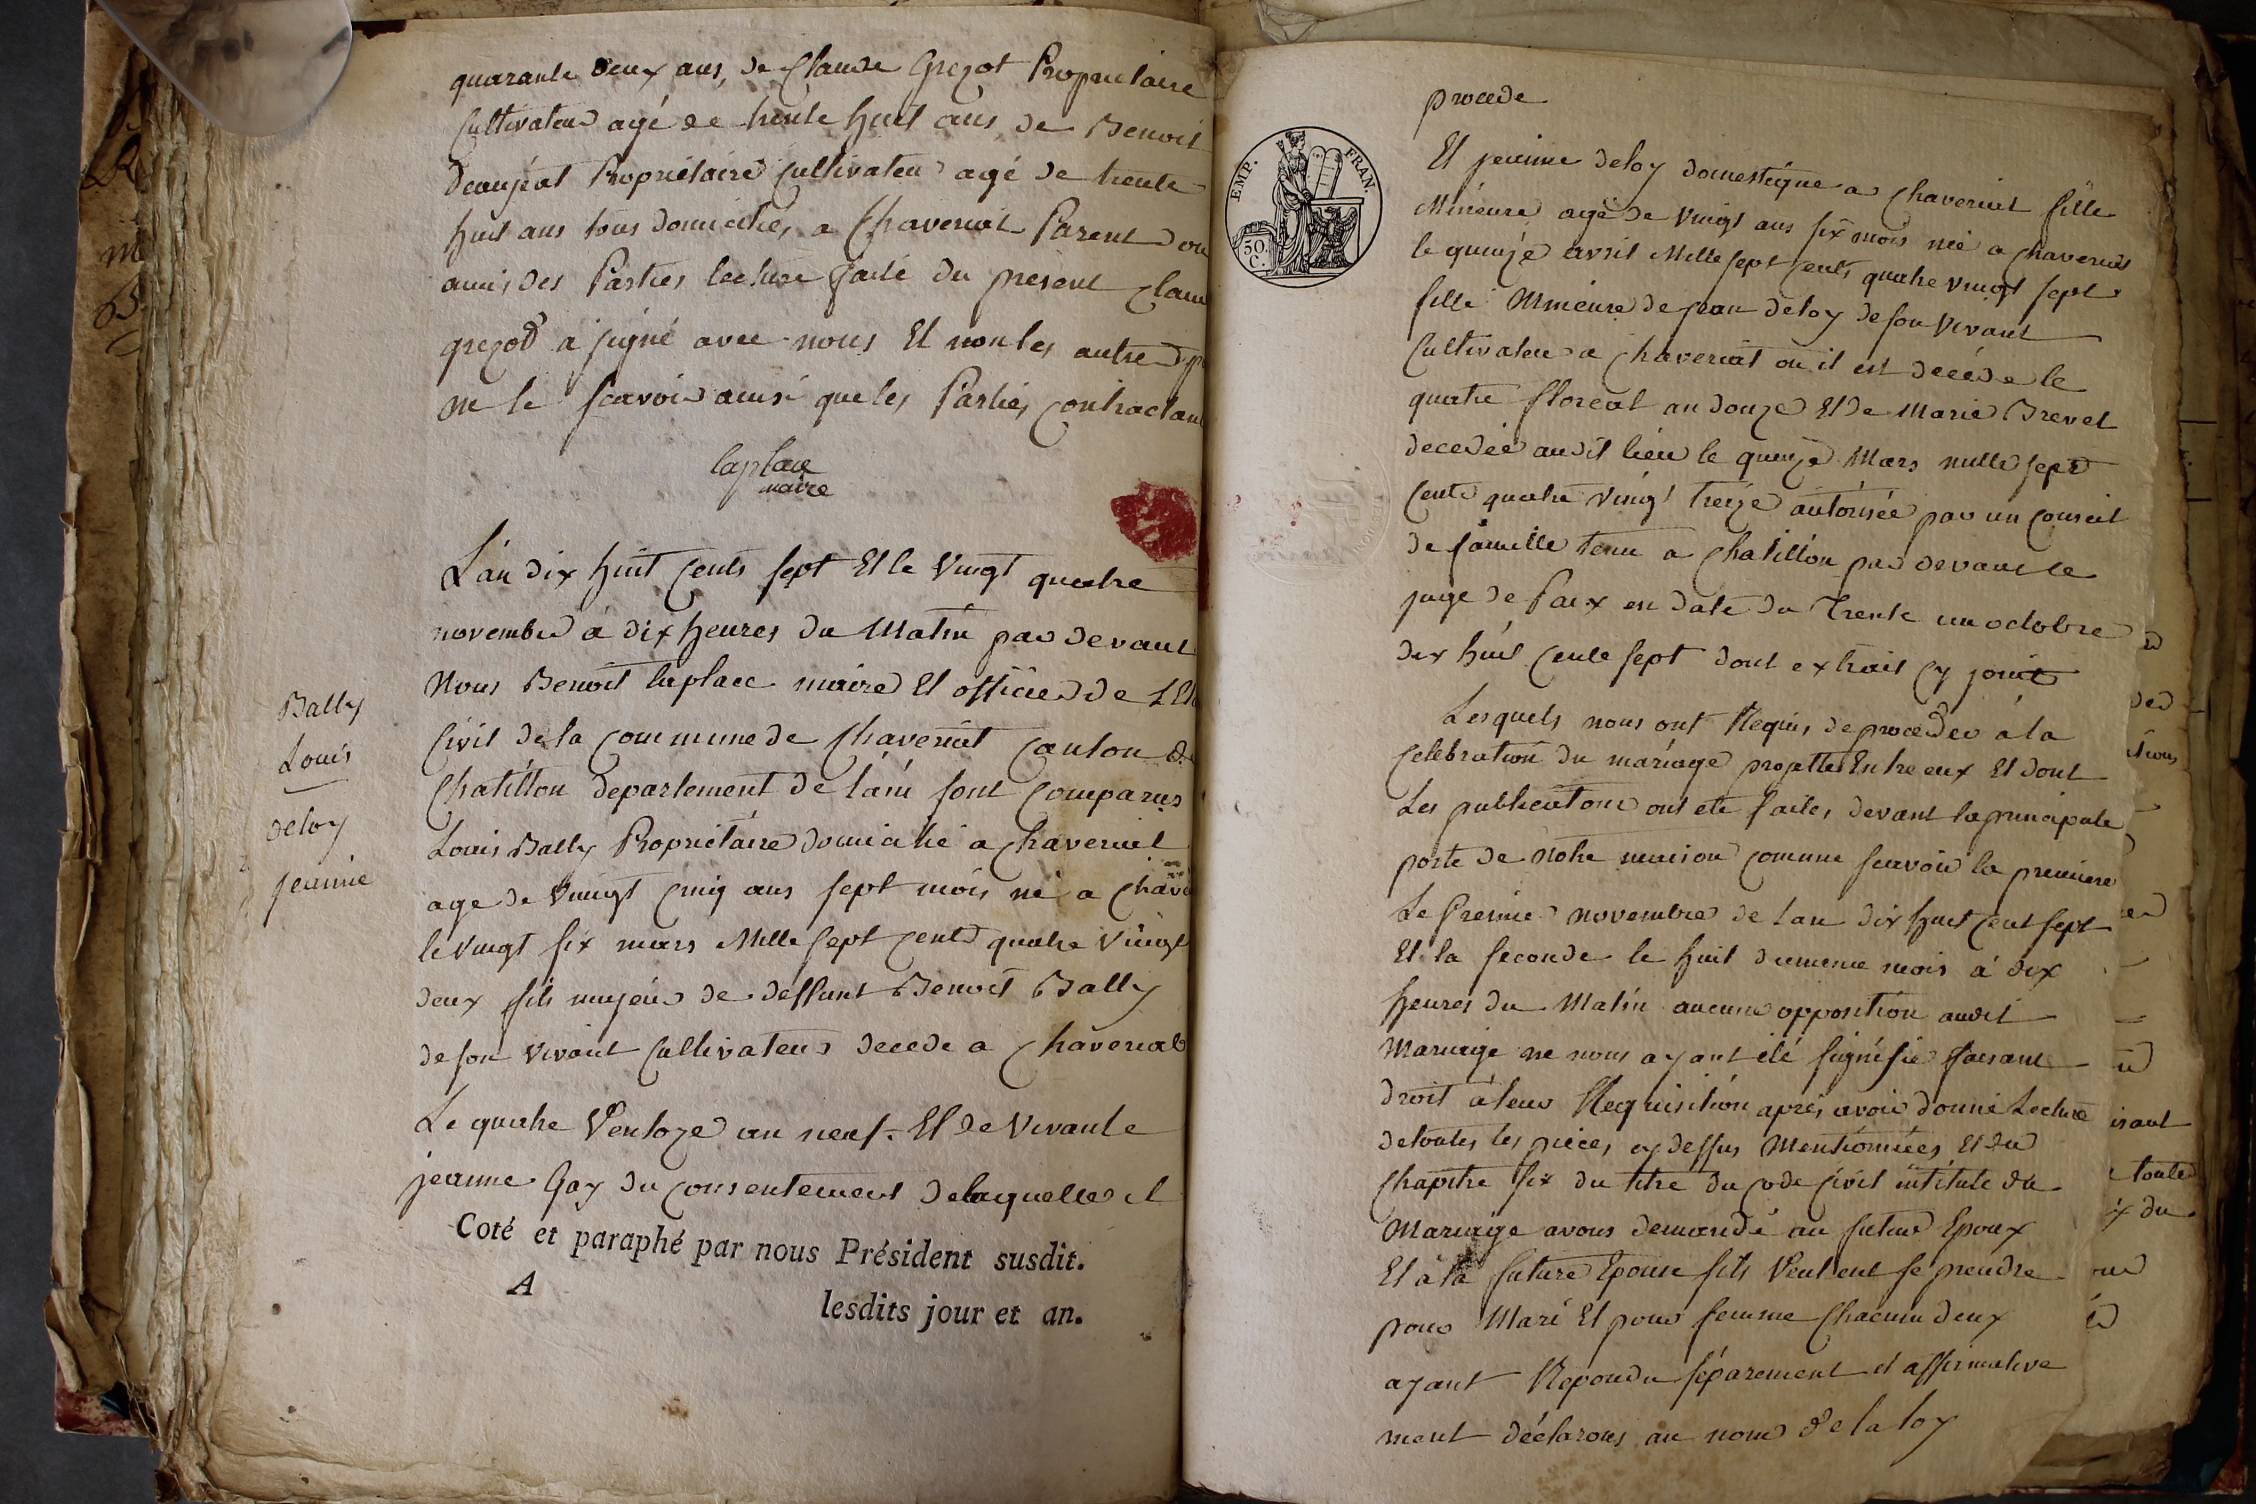 quarante deux ans, de Claude Grezot Proprietaire
Cultivateur agé de trente huit ans de Benoit
Proprietaire Cultivateur agé de trente
huit ans tous domicilies a Chaveriat Parent ou
amis des Parties lecture faite du present Clau
grezot a signé avec nous Et non les autre p
ne le scavoir ainsi que les Parties Contractan
laplace
maire
L'an dix huit Cents sept Et le Vingt quatre
novembre á dix heures du Matin par devant
Nous Benoit laplace maire Et officier de L'Et
Civil de la Commune de Chaveriat Canton de
Chatillon departement de l'ain sont Comparus
Bally
Louis
deloy
jeanne
Louis Bally Proprietaire domicilié a Chaveriat
age de Vingt Cinq ans sept mois né a Chave
le Vingt six mars Mille sept Cents quatre Vingt
deux fils majeur de deffunt Benoit Bally
de son vivant Cultivateur decede a Chaveriat
Le quatre Ventoze an neuf. Et de Vivante
jeanne Gay du Consentement de laquelle il
Coté et paraphé par nous Président susdit.
A
lesdits jour et an.
procede
EMP. FRAN.
50.
C.
Et jeanne deloy domestique a Chaveriat fille
Mineure agé de Vingt ans six mois née a Chaveriat
le quinze avril Mille sept Cents quatre vingt sept
fille Mineure de jean deloy de son Vivant
Cultivateur a Chaveriat ou il est decede le
quatre floreal an douze Et de Marie Brevet
decedée audit lieu le quinze Mars mille sept
Cents quatre Vingt treize autorisée par un Conseil
de famille tenu a Chatillon par devant le
juge de Paix en date du Trente un octobre
dix huit Cents sept dont extrait Cy joint
Lesquels nous ont Requis de proceder á la
Celebration du mariage projetté Entre eux Et dont
Les publications ont ete faites devant la principale
porte de notre maison Commune scavoir la premiere
Le Premier novembre de l'an dix huit Cent sept
Et la seconde le huit du meme mois á dix
heures du Matin aucune opposition audit
Mariage ne nous ayant été signifié faisant
droit á leur Requisition aprés avoir donné Lecture
de toutes les pieces cy dessus Mentionnées Et du
Chapitre six du titre du Code Civil intitulé du
Mariage avons demandé au futur Epoux
Et á la future Epouse s'ils Veulent se prendre
pour Mari Et pour femme Chacun deux
ayant Repondu séparement et affirmative
ment déclarons au nom de la loy
isant
toute
x du